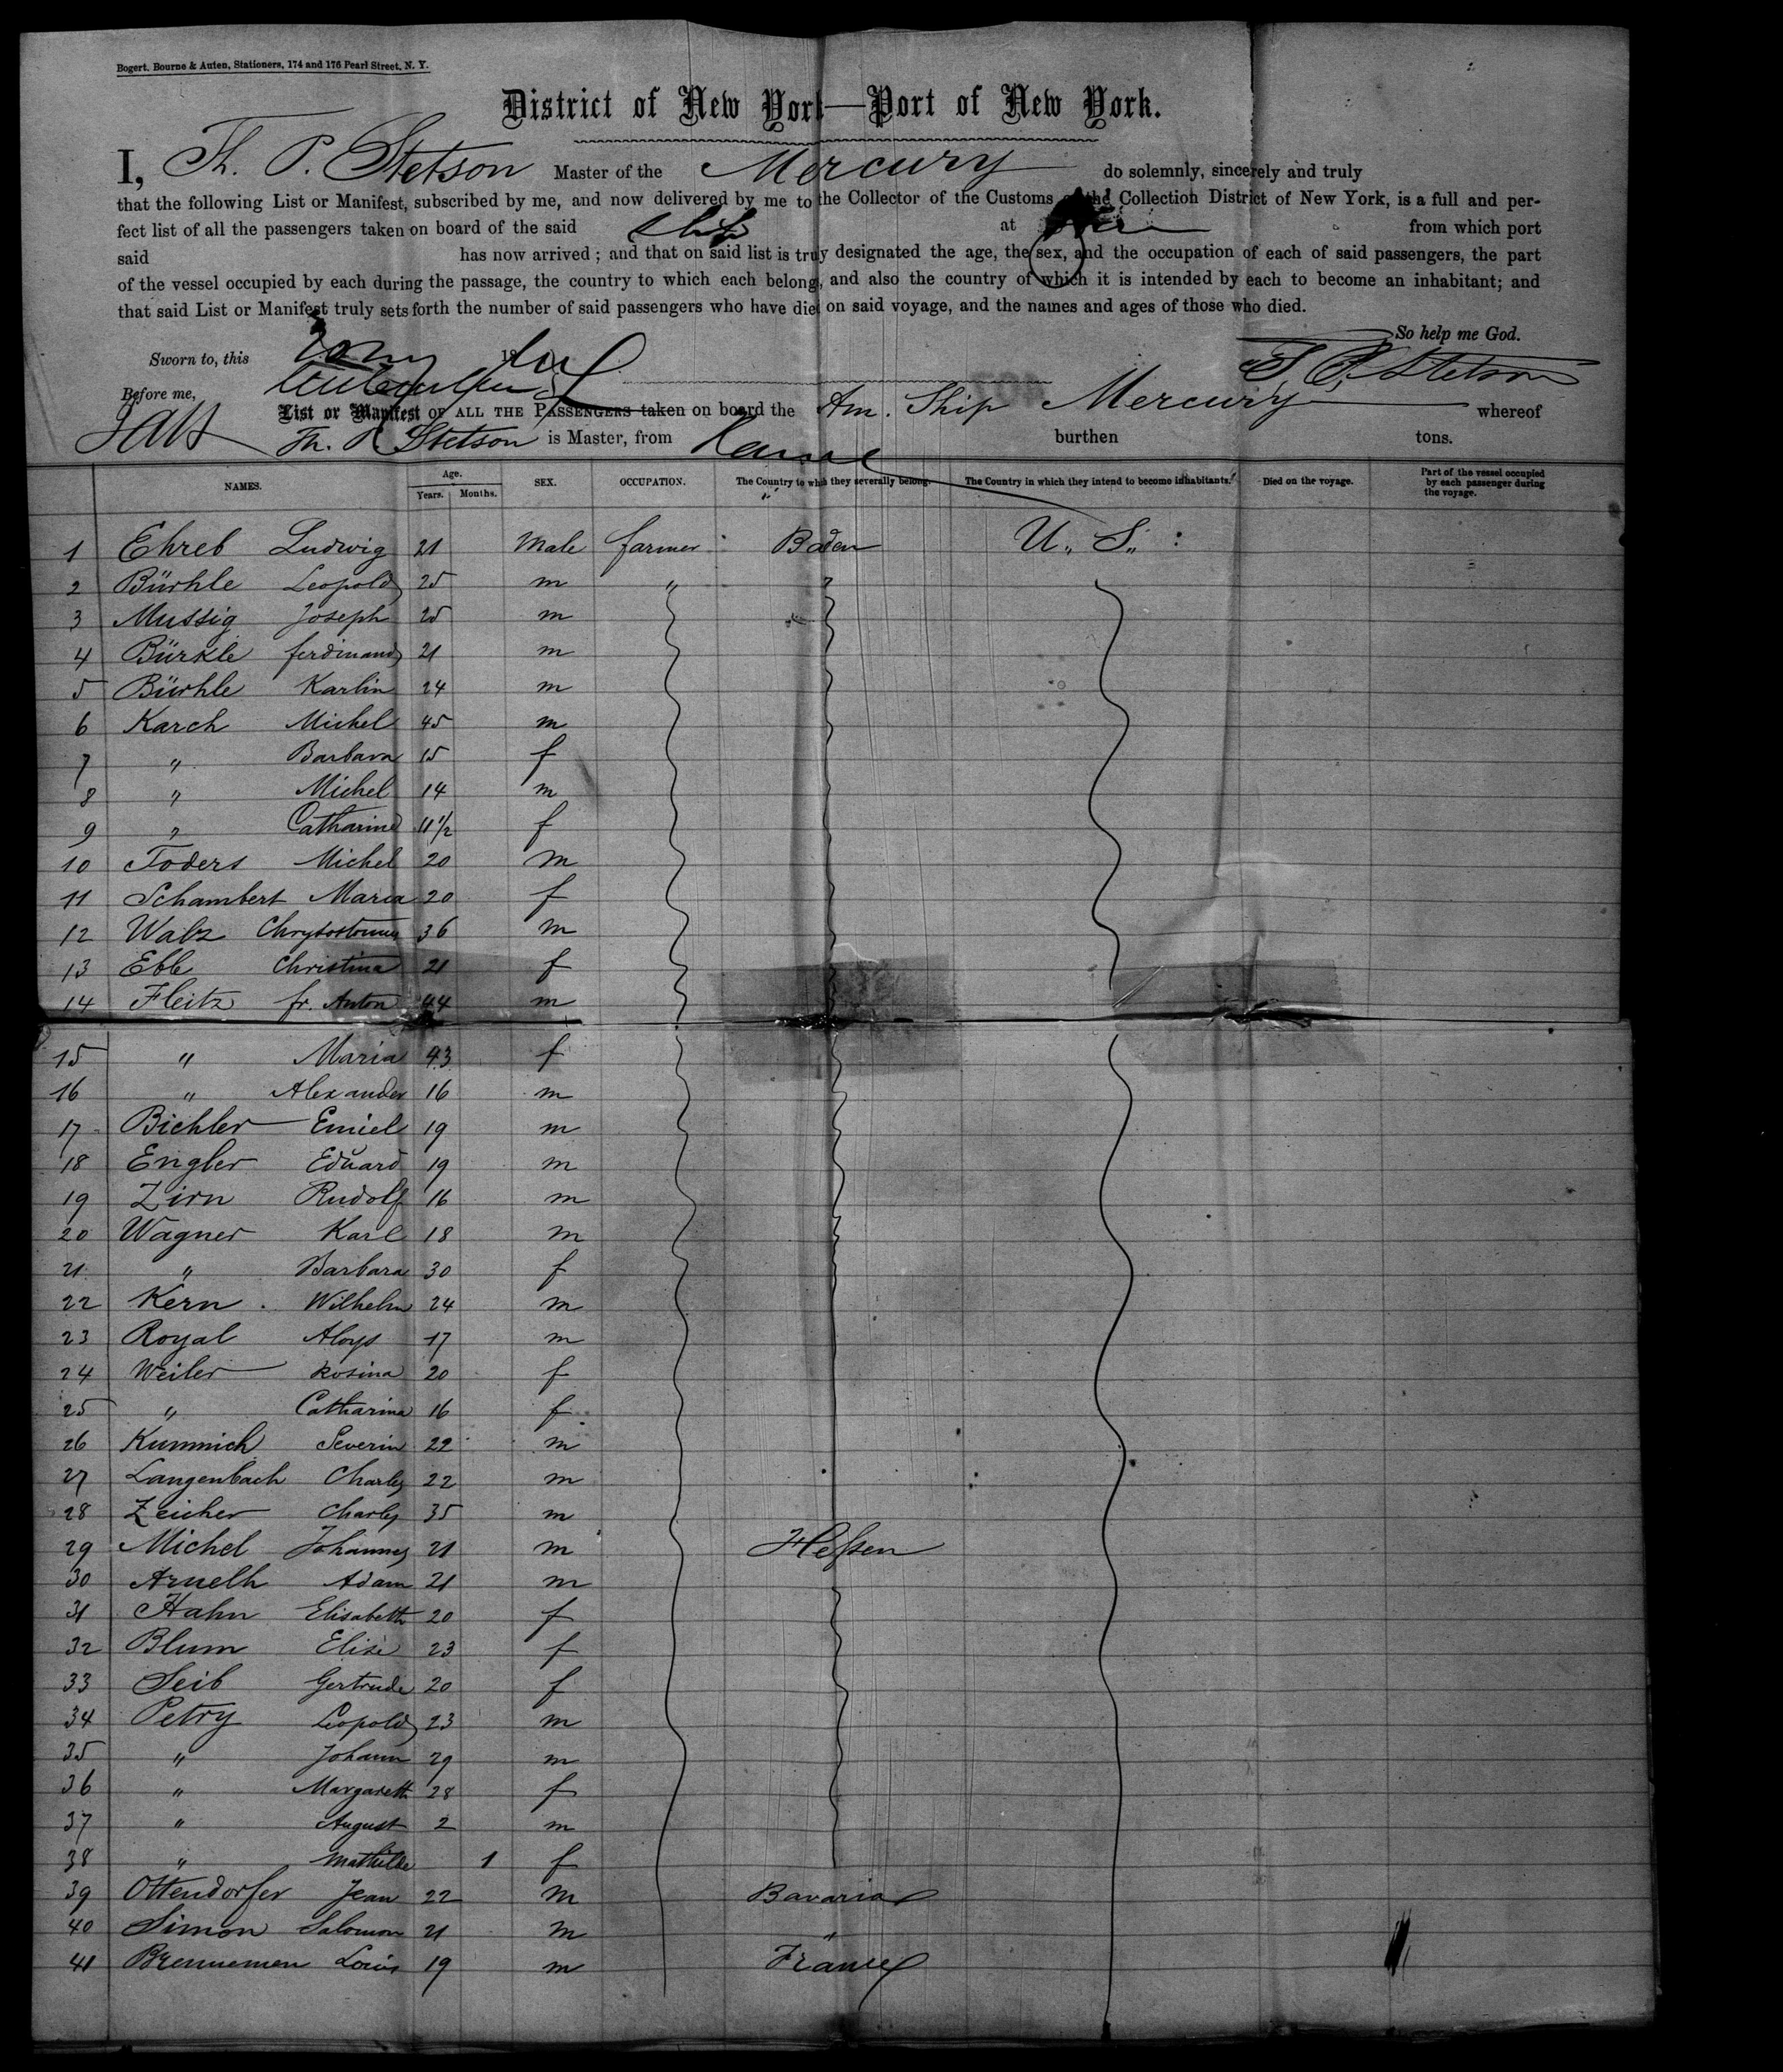 Bogert, Bourne & Auten, Stationers, 174 and 176 Pearl Street, N. Y.
District of New York—Port of New York.
I, Th. P. Stetson Master of the Mercury do solemnly, sincerely and truly
that the following List or Manifest, subscribed by me, and now delivered by me to the Collector of the Customs of the Collection District of New York, is a full and per-
fect list of all the passengers taken on board of the said Ship at from which port
said has now arrived ; and that on said list is truly designated the age, the sex, and the occupation of each of said passengers, the part
of the vessel occupied by each during the passage, the country to which each belong, and also the country of which it is intended by each to become an inhabitant; and
that said List or Manifest truly sets forth the number of said passengers who have died on said voyage, and the names and ages of those who died.
So help me God.
Sworn to, this 18
T P Stetson
Before me,
List or Manifest OF ALL THE PASSENGERS taken on board the Am. Ship Mercury whereof
Th. P. Stetson is Master, from Havre burthen tons.
NAMES. Age. Years. Months. SEX. OCCUPATION. The Country to which they severally belong. The Country in which they intend to become inhabitants. Died on the voyage. Part of the vessel occupied by each passenger during the voyage.
1 Ehreb Ludwig 21 Male farmer Baden U. S.
2 Bürhle Leopold 25 m "
3 Mussig Joseph 25 m
4 Bürkle ferdinand 21 m
5 Bürhle Karlin 24 m
6 Karch Michel 45 m
7 " Barbara 15 f
8 " Michel 14 m
9 " Catharine 11 1/2 f
10 Toders Michel 20 m
11 Schambert Maria 20 f
12 Walz Chrysostomus 36 m
13 Eble Christina 21 f
14 Fleitz fr. Anton 44 m
15 " Maria 43 f
16 " Alexander 16 m
17 Bichler Emiel 19 m
18 Engler Eduard 19 m
19 Zirn Rudolf 16 m
20 Wagner Karl 18 m
21 " Barbara 30 f
22 Kern Wilhelm 24 m
23 Royal Aloys 17 m
24 Weiler Rosina 20 f
25 " Catharina 16 f
26 Kumnich Severin 22 m
27 Langenbach Charles 22 m
28 Zeicher Charles 35 m
29 Michel Johannes 21 m Hessen
30 Arnelh Adam 21 m
31 Hahn Elisabeth 20 f
32 Blum Elise 23 f
33 Seib Gertrude 20 f
34 Petry Leopold 23 m
35 " Johann 29 m
36 " Margareth 28 f
37 " August 2 m
38 " Mathilde 1 f
39 Ottendorfer Jean 22 m Bavaria
40 Simon Salomon 21 m "
41 Brennemen Louis 19 m France